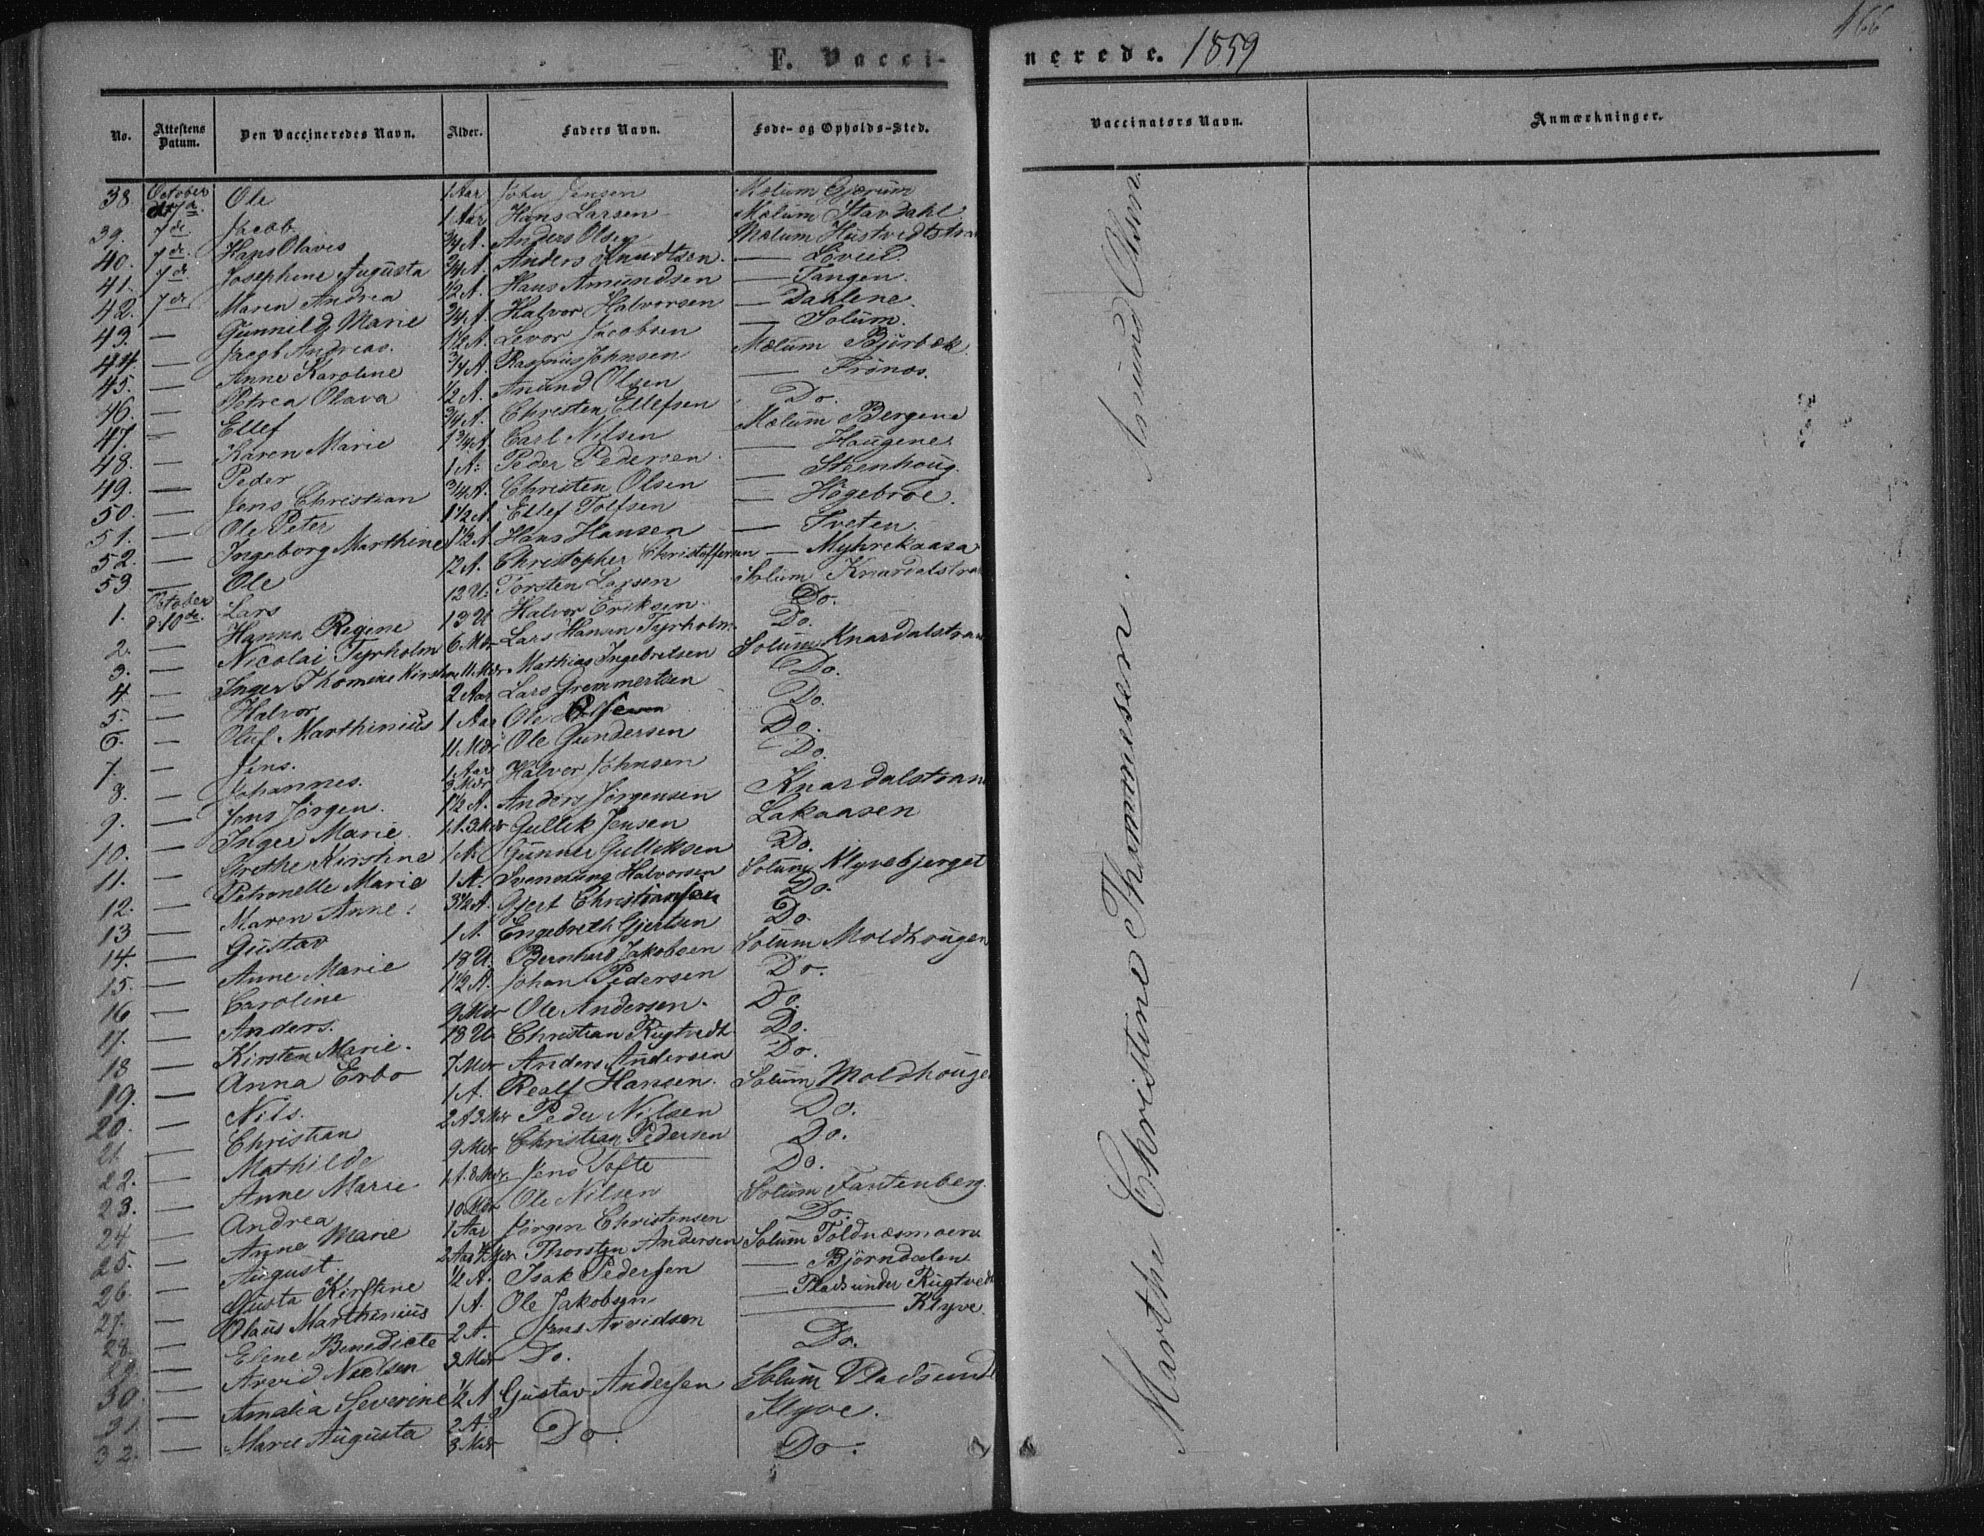 166
F. Vaccinerede. 1859
No. Attestens Datum. Den Vaccineredes Navn. Alder. Faders Navn. Føde- og Opholds-Sted. Vaccinators Navn. Anmærkninger.
38. October d. 7de Ole 1 Aar John Jensen Mælum Gjærum
39. 7de Jacob 1 Aar Hans Larsen Mælum Stavdahl
40. 7de Hans Olaves 3/4 A. Anders Olsen Mælum Hustvedtstra
41. 7de Josephine Augusta 3/4 A. Anders Knudtsen — Løveid
42. 7de Maren Andrea 1/2 A. Hans Amundsen — Tangen
43. — Gunnild Marie 3/4 A Halvor Halvorsen — Dahlene
44. — Jacob Andreas 1 1/2 A. Levor Jacobsen — Solum
45. — Anne Karoline 3/4 A. Rasmus Johnsen Mælum Bjørbæk
46. — Petrea Olava 1/2 A. Anund Olsen — Frønos
47. — Ellef 3/4 A. Christen Ellefsen Do.
48. — Karen Marie 1 3/4 A Carl Nilsen Mælum Bergene
49. — Peder 1 A. Peder Pedersen — Haugene
50. — Jens Christian 3/4 A. Christen Olsen — Steenhoug
51. — Ole Peter 1 1/2 A. Ellef Tolfsen — Högebroe
52. — Ingeborg Marthine 1 1/2 A Hans Hansen — Tveten
53. — Ole 1/2 A. Christopher Christoffersen — Myhrekaasa
1. October d. 10de Lars 12 U. Torsten Larsen Solum Knardalstra
2. — Hanna Regine 13 U Halvor Eriksen Do.
3. — Nicolai Tyrholm 6 Mdr Lars Hansen Tyrholm Do.
4 — Inger Thomine Kirstin 11 Mdr Mathias Ingebretsen Solum Knardalstran
5. — Halvor 2 Aar Lars Gremmertsen Do.
6. — Oluf Marthinius 1 Aar Ole Do.
7. — Jens. 11 Mdr Ole Gundersen Do.
8. — Johannes. 1 Aar 3 Mdr Halvor Johnsen Do.
9. — Jens Jörgen. 1 1/2 A. Anders Jörgensen Knardalstran
10. — Inger Marie 1 A. 3 Mdr Gullik Jensen Lakaasen
11. — Grethe Kirstine 1 A. Gunner Gulliksen Do.
12. — Petronelle Marie 1 A. Svennung Halvorsen Solum Klyvebjerget
13 — Maren Anne. 3 1/2 A. Gjert Christiansen Do.
14. — Gustav 1 A. Engebreth Gjertsen Do.
15. — Anne Marie 18 U. Bernhard Jakobsen Solum Moldhougen
16 — Caroline 1 1/2 A. Johan Pedersen Do.
17. — Anders. 9 Mdr Ole Andersen. Do.
18 — Kirsten Marie. 18 U Christian Rugtvedt Do.
19. — Anna Erbo 7 Mdr Anders Andersen Do.
20. — Nils. 1 A. Realf Hansen. Solum Moldhouge
21 — Christian 2 A 3 Mdr Peder Nilsen Do.
22. — Mathilde 9 Mdr Christian Pedersen Do.
23. — Anne Marie 1 A. 8 Mdr Jens Tofte Do.
24 — Andrea 10 Mdr Ole Nilsen Solum Fantenberg.
25. — Anne Marie 1 Aar Jörgen Christensen Do.
26. — August 2 Aar Mdr Thorsten Andersen Solum Toldnæsmoen
27. — Gusta Kirstine 1/2 A. Isak Pedersen — Björndalen
28. — Olaus Marthinius 1 A. Ole Jakobsen — Plads under Rugtvedt
29. — Elene Benedicte 2 A. Jens Arvidsen — Klyve
30. — Arvid Nielsen 3 Mdr Do. Do.
31. — Amalia Severine 1/2 A Gustav Andersen Solum Plads und
32. — Marie Augusta 2 A. 3 Mdr Do. Klyve.
Do.
Amund Olsen
Marthe Christine Thommesen.